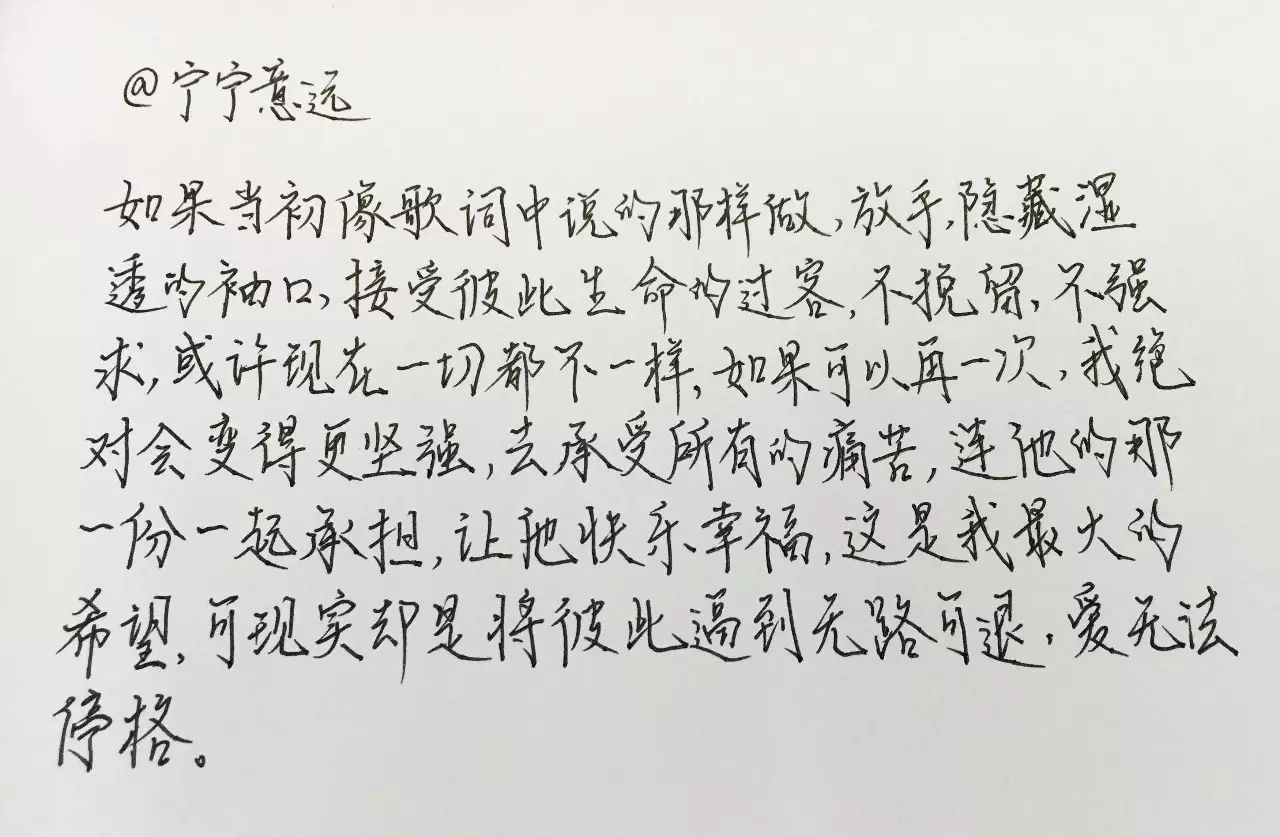 @宁宁意远
如果当初像歌词中说的那样做,放手,隐藏湿
透的袖口,接受彼此生命的过客,不挽留,不强
求,或许现在一切都不一样,如果可以再一次,我绝
对会变得更坚强,去承受所有的痛苦,连他的那
一份一起承担,让他快乐幸福,这是我最大的
希望,可现实却是将彼此逼到无路可退,爱无法
停格。